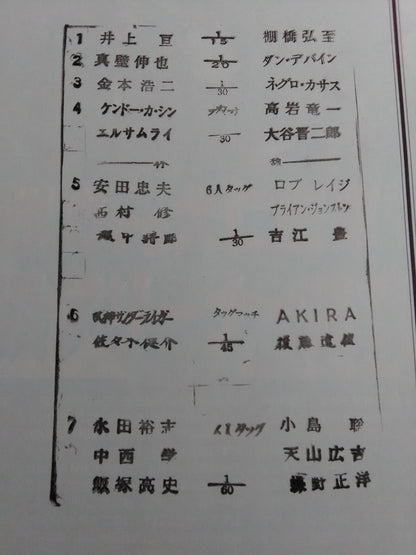 1 井上 亘 1/15 棚橋弘至
2 真壁伸也 1/20 ダン・デバイン
3 金本浩二 1/30 ネグロ・カサス
4 ケンドー・カ・シン タッグマッチ 高岩竜一
エルサムライ 1/30 大谷晋二郎
5 安田忠夫 6人タッグ ロブ レイジ
西村 修 ブライアン・ジョンストン
越中詩郎 1/30 吉江 豊
6 獣神サンダーライガー タッグマッチ AKIRA
佐々木健介 1/45 後藤達俊
7 永田裕志 6人タッグ 小島 聡
中西 学 天山広吉
飯塚高史 1/60 蝶野正洋